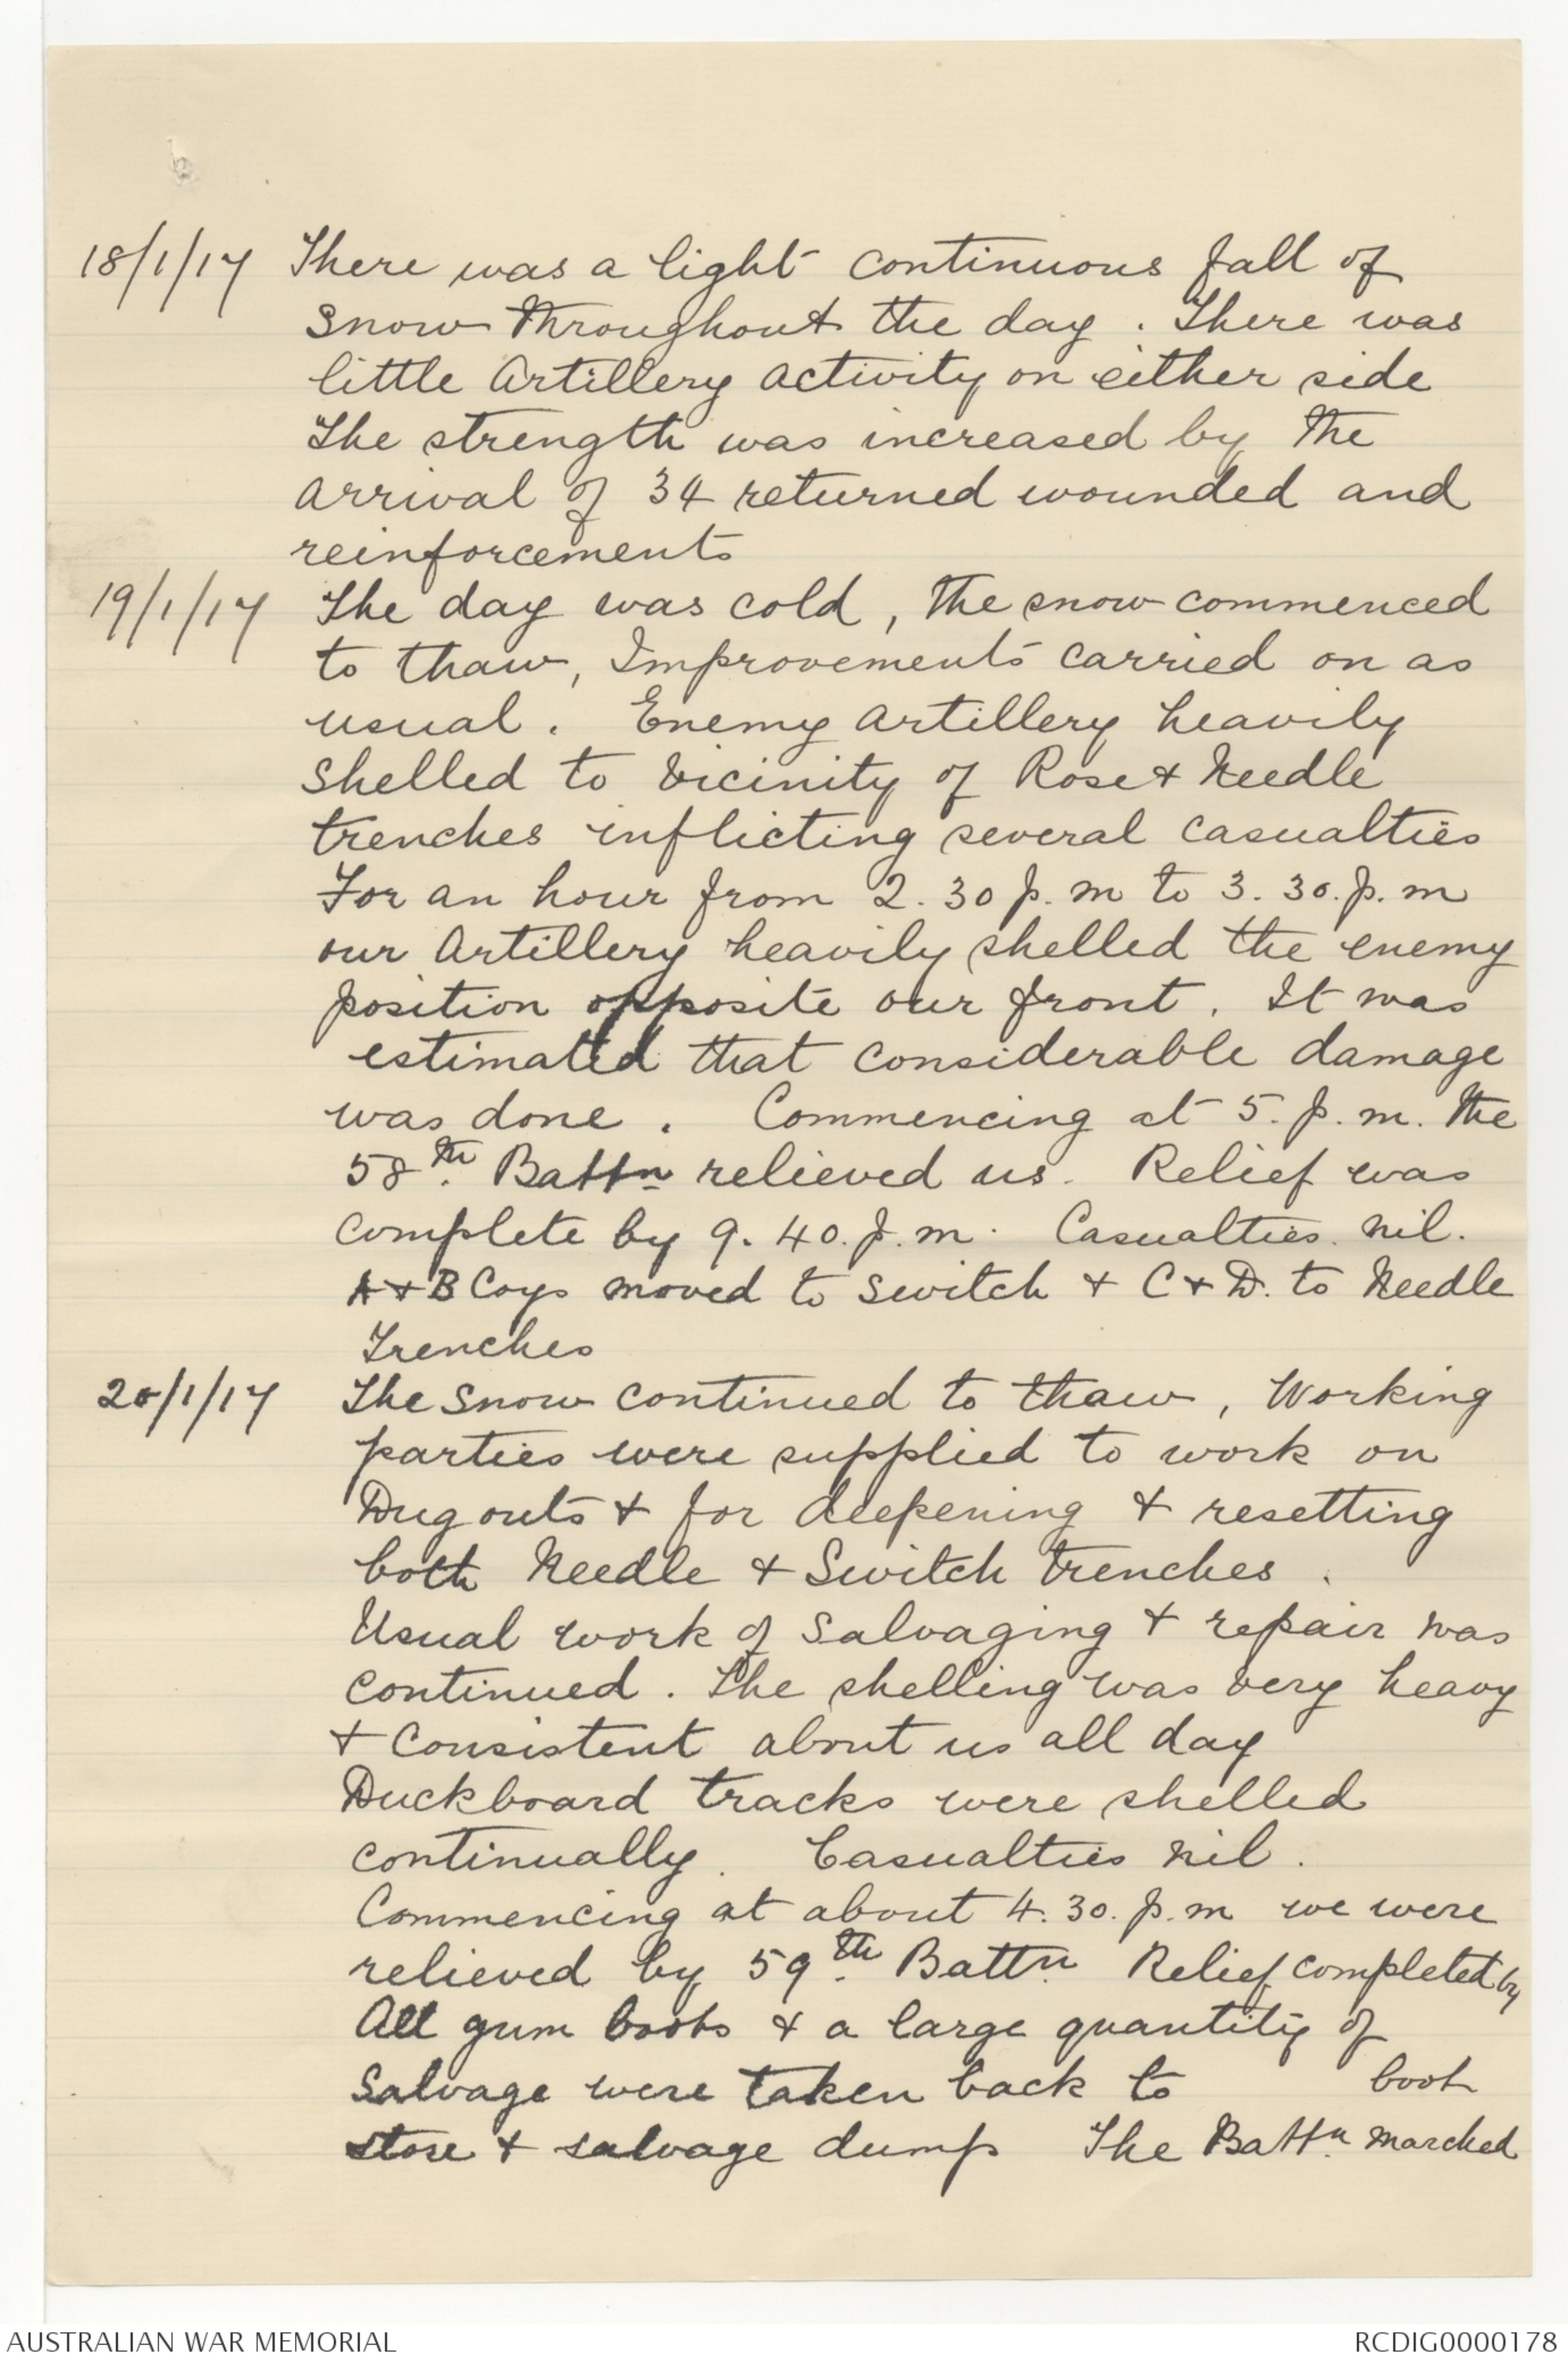 18/1/17 There was a light continuous fall of
snow throughout the day. There was
little Artillery activity on either side
The strength was increased by the
arrival of 34 returned wounded and
reinforcements
19/1/17 The day was cold, the snow commenced
to thaw, Improvements carried on as
usual. Enemy artillery heavily
shelled to vicinity of Rose & Needle
trenches inflicting several casualties
For an hour from 2.30 p.m to 3.30.p.m
our Artillery heavily shelled the enemy
position opposite our front. It was
estimated that considerable damage
was done. Commencing at 5.p.m. the
58th. Battn relieved us. Relief was
complete by 9.40.p.m. Casualties nil.
A & B Coys moved to Switch & C & D. to Needle
Trenches
20/1/17 The snow continued to thaw, Working
parties were supplied to work on
Dug outs & for deepening & resetting
both Needle & Switch trenches.
Usual work of salvaging & repair was
continued. The shelling was very heavy
& consistent about us all day
Duckboard tracks were shelled
continually. Casualties nil.
Commencing at about 4.30.p.m we were
relieved by 59th. Battn Relief completed by
All gum boots & a large quantity of
salvage were taken back to boot
store & salvage dump The Battn. marched
AUSTRALIAN WAR MEMORIAL
RCDIG0000178